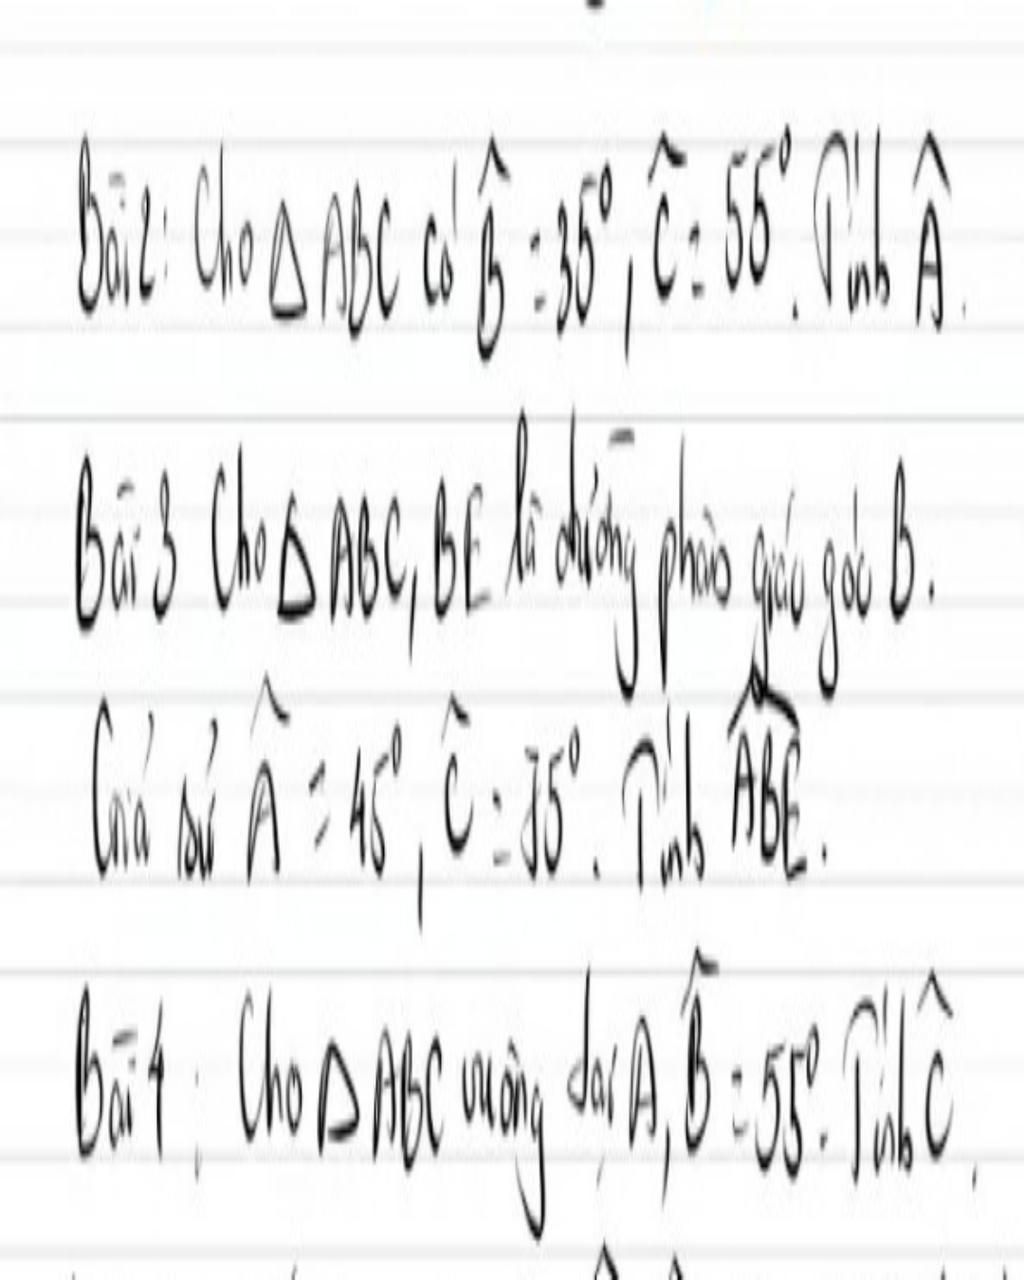 Bài 2: Cho Δ ABC có B̂ = 35°, Ĉ = 55°. Tính Â.
Bài 3 Cho Δ ABC, BE là đường phân giác góc B.
Giả sử Â = 45°, Ĉ = 75°. Tính ABE.
Bài 4: Cho Δ ABC vuông tại A, B̂ = 55°. Tính Ĉ.